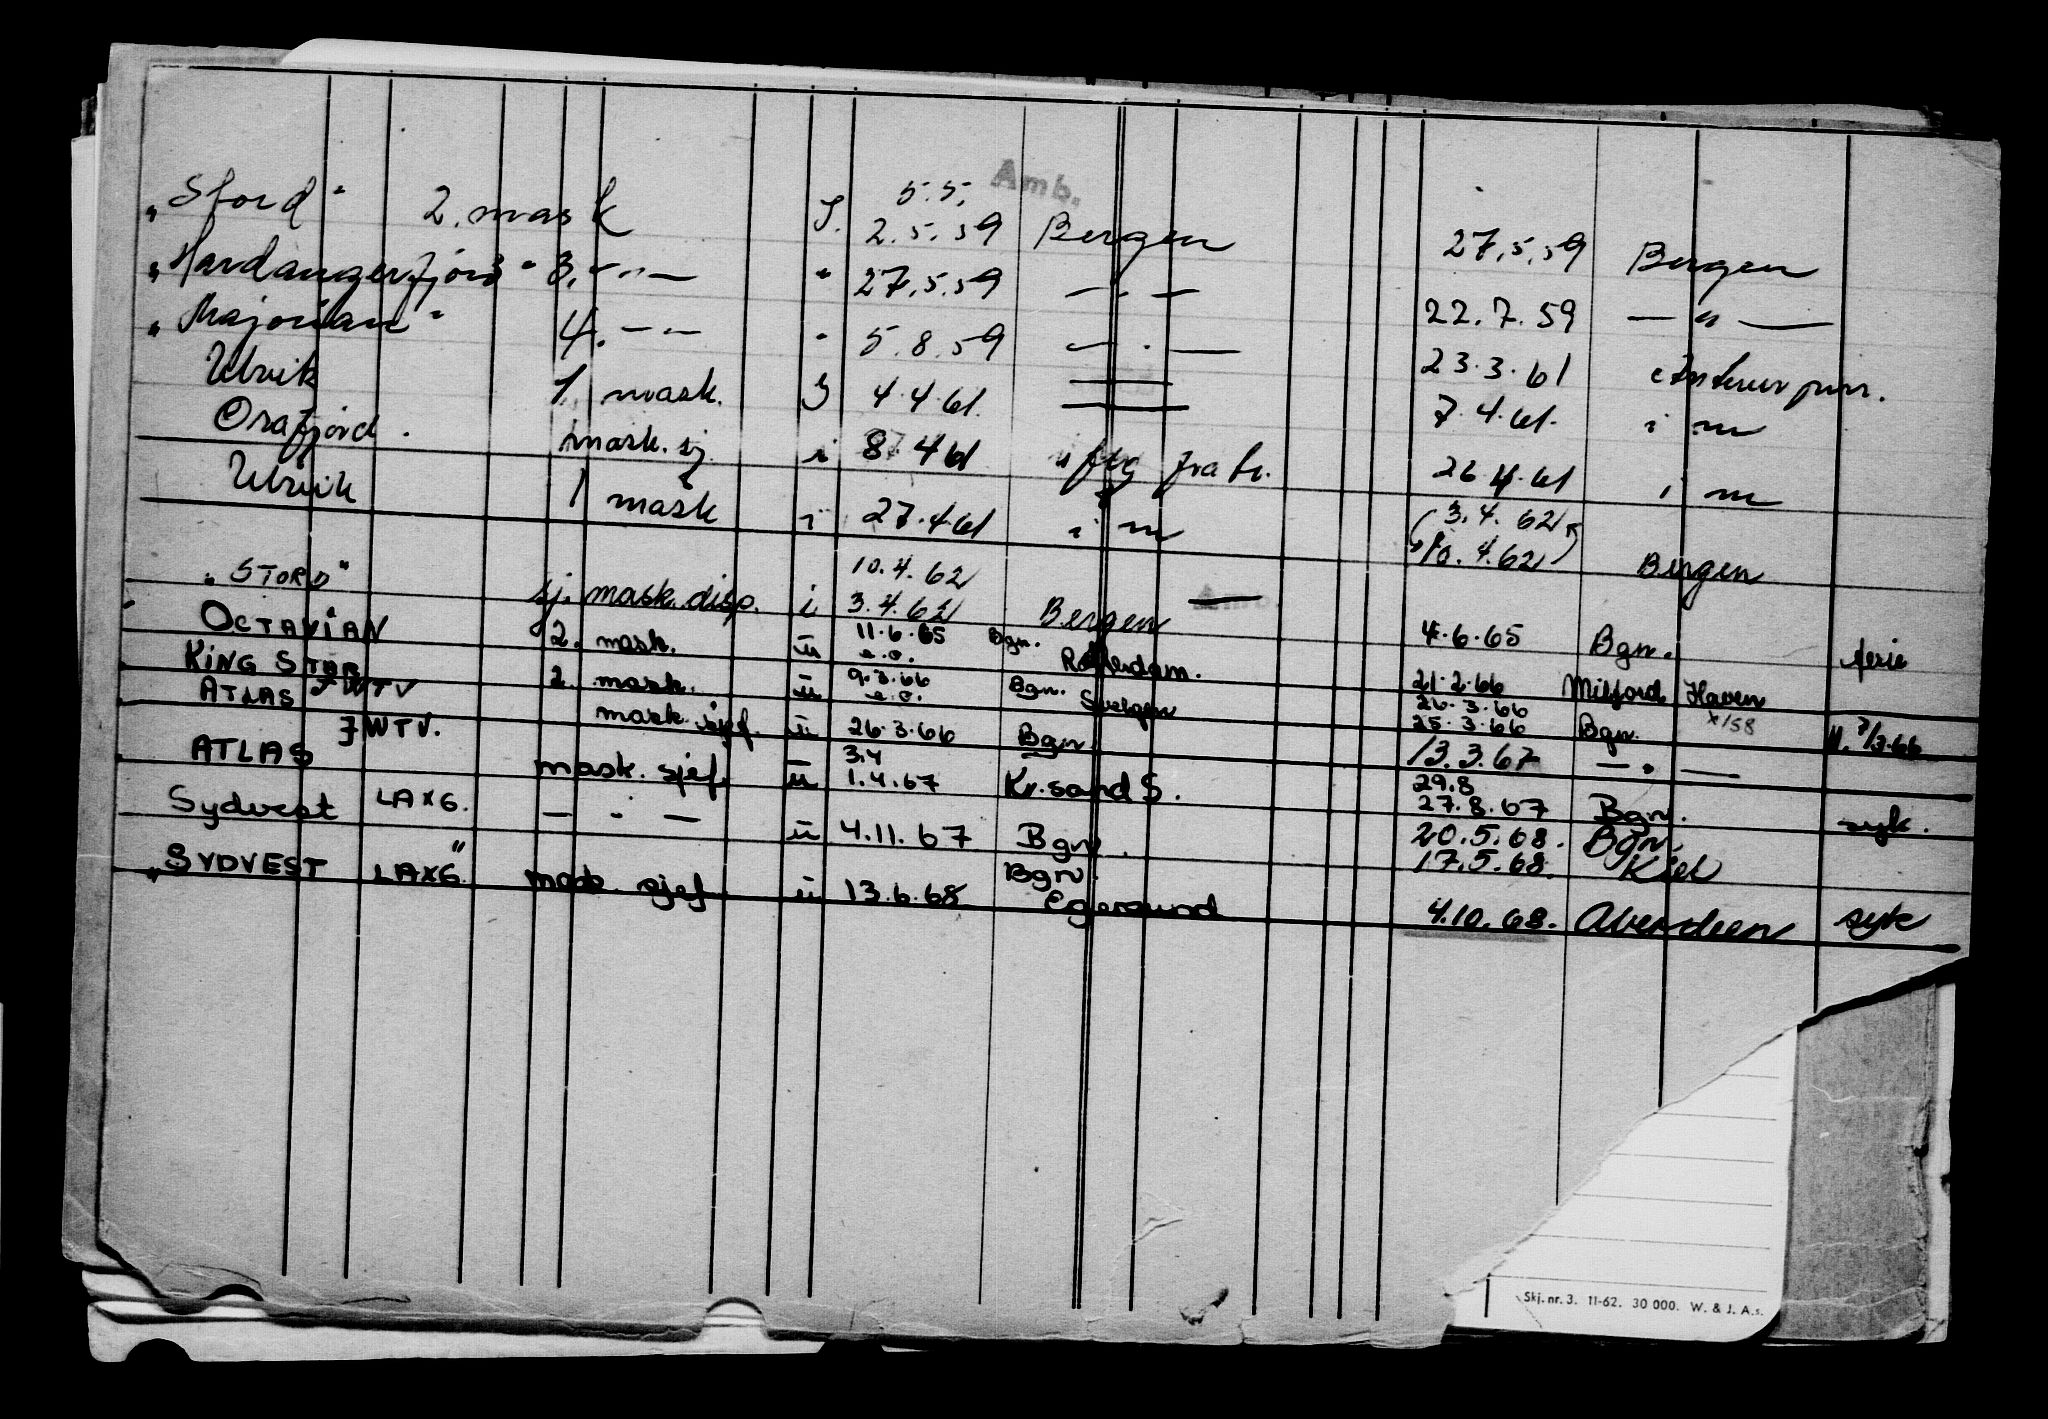 Amb.
5.5.
"Stord" 2. mask I. 2.5.59 Bergen 27.5.59 Bergen
"Hardangerfjord" 3. —"— " 27.5.59 — " — 22.7.59 — " —
"Majorian" 4. —"— " 5.8.59 — " — 23.3.61 Antwerpen.
Ulvik 1 mask. I 4.4.61. 7.4.61. i m
Osafjord. mask. sj i 8 4 61 fra 26.4.61 i m
Ulvik 1 mask i 27.4.61 i m 3.4.62
10.4.62 Bergen
10.4.62
"STORD" sj. mask. disp. i 3.4.62 Bergen
OCTAVIAN 2. mask. u 11.6.65 Bgn. Rotterdam. 4.6.65 Bgn. ferie
KING STAR 2. mask. u 9.3.66 Bgn. Svelgen 21.2.66 Milford Haven
26.3.66
ATLAS JWTV mask. sjef. u 26.3.66 Bgn. 25.3.66 Bgn.
ATLAS JWTV. mask. sjef. u 3.4 1.4.67 Kr.sand S. 13.3.67 — " —
29.8
27.8.67 Bgn. syk.
Sydvest LAXG. — " — u 4.11.67 Bgn. 20.5.68. Bgn.
17.5.68. Kiel
"SYDVEST LAXG" mask. sjef. u 13.6.68 Bgn. Egersund 4.10.68. Aberdeen syk
Skj. nr. 3. 11-62. 30 000. W. & J. A.s.